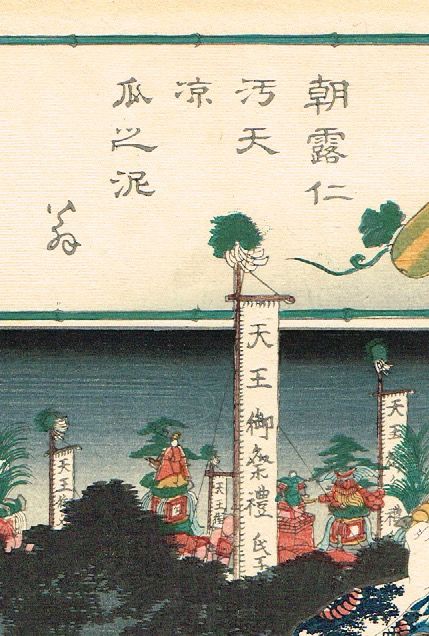 朝露仁
汚天
凉
瓜之泥
翁
天王御祭禮 氏子
天王
天王
天王
禮